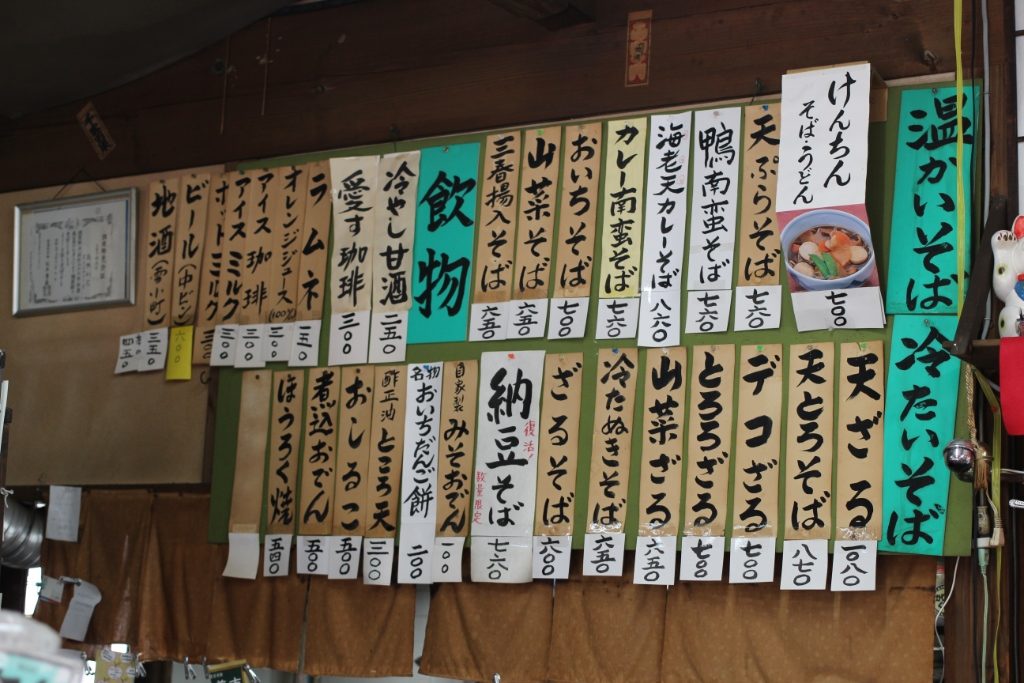 温かいそば
けんちん
そば・うどん
七〇〇
天ぷらそば
七六〇
鴨南蛮そば
七六〇
海老天カレーそば
八六〇
カレー南蛮そば
七六〇
おいちそば
七〇〇
山菜そば
六五〇
三春揚入そば
六五〇
飲物
冷やし甘酒
二五〇
愛す珈琲
三〇〇
ラムネ
二五〇
オレンジジュース
(100%)
アイス珈琲
アイスミルク
ホットミルク
ビール(中ビン)
六〇〇
地酒
三五〇
四五〇
冷たいそば
天ざる
一〇八〇
天とろそば
八七〇
デコざる
七〇〇
とろろざる
七〇〇
山菜ざる
六五〇
冷たぬきそば
六五〇
ざるそば
六〇〇
納豆そば
復活!
数量限定
七六〇
自家製
みそおでん
名物
おいちだんご餅
二〇〇
酢正油
ところ天
三〇〇
おしるこ
五五〇
煮込おでん
五〇〇
ほうろく焼
五四〇